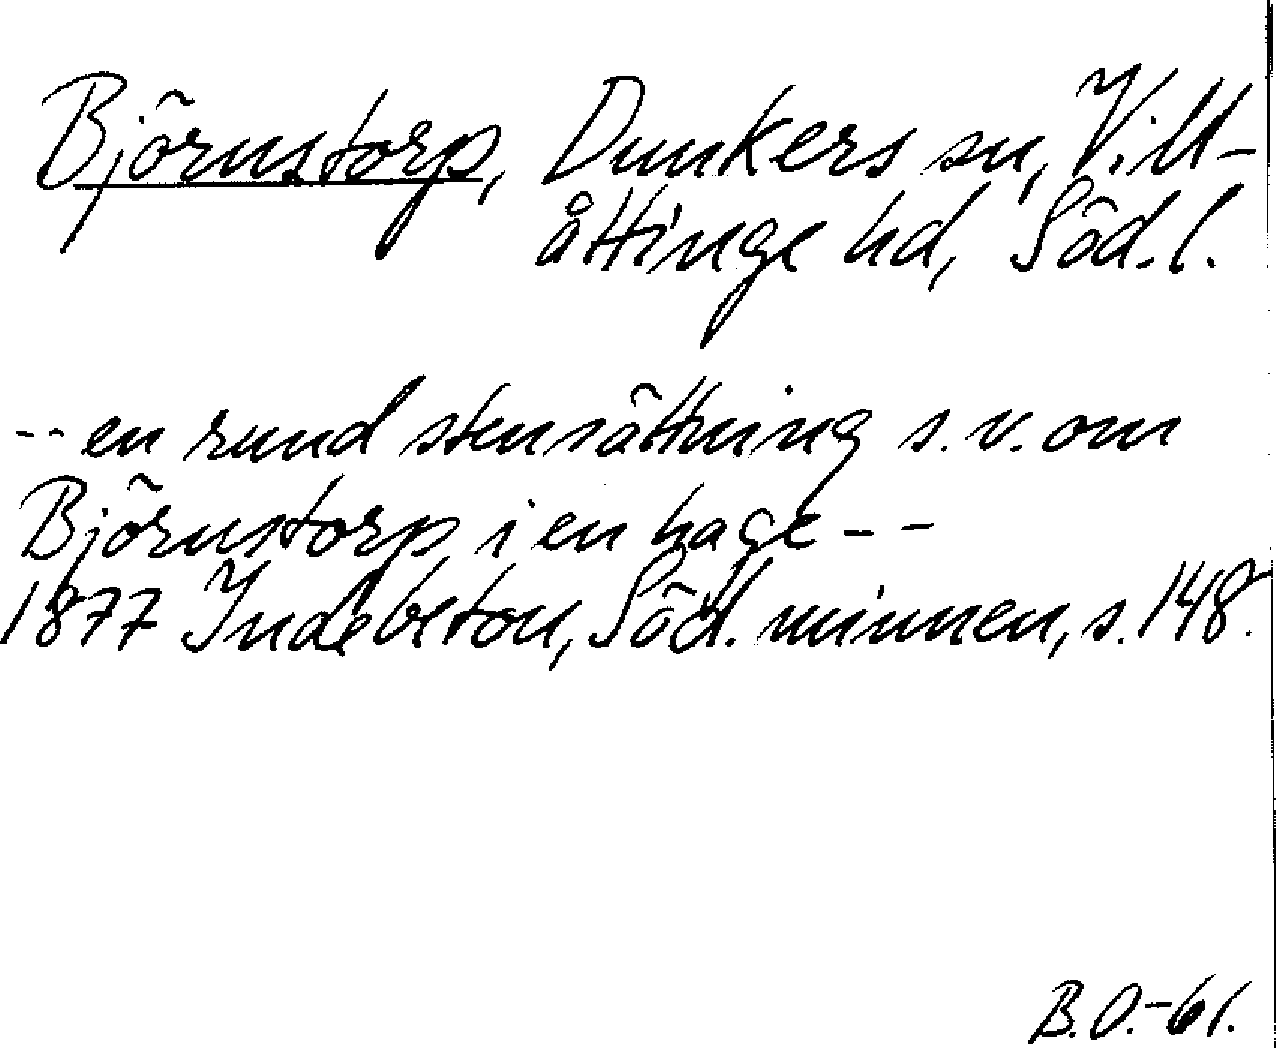 Björnstorp, Dunkers sn, Vill-
åttinge hd, Söd. l.
-- en rund stensättning s.v. om
Björnstorp i en hage --
1877 Indebetou, Söd. minnen, s. 148.
B.O.-61.